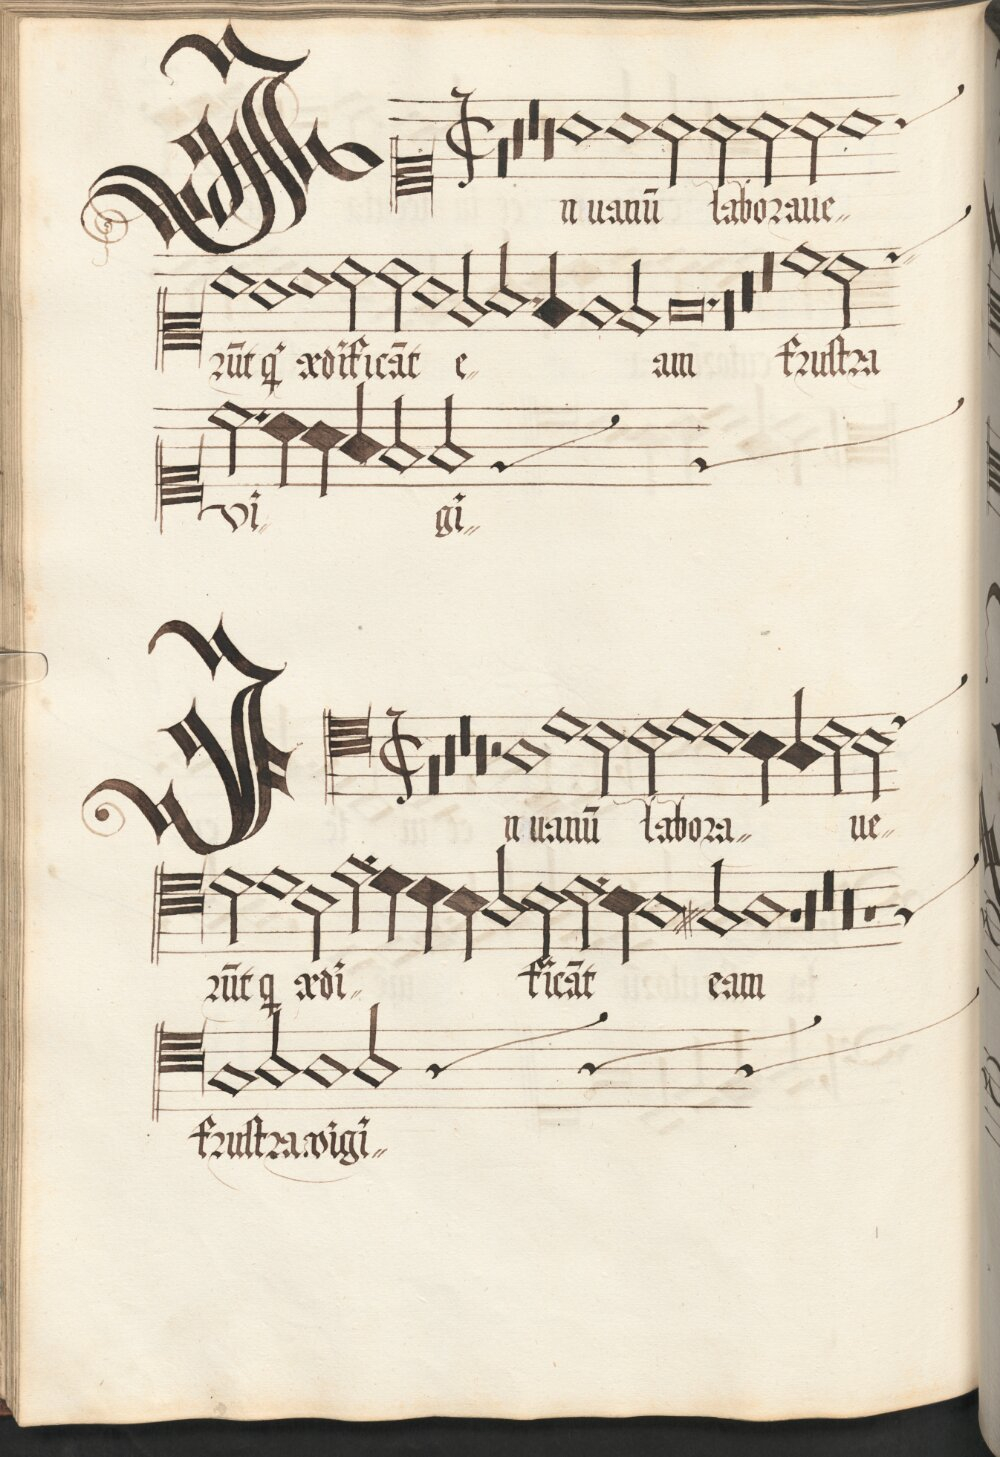 In uanū laboraue„
rūt q̄ ædificāt e„ am frustra
vi„ gi„
In uanū labora„ ue„
rūt q̄ ædi„ ficāt eam
frustra vigi„